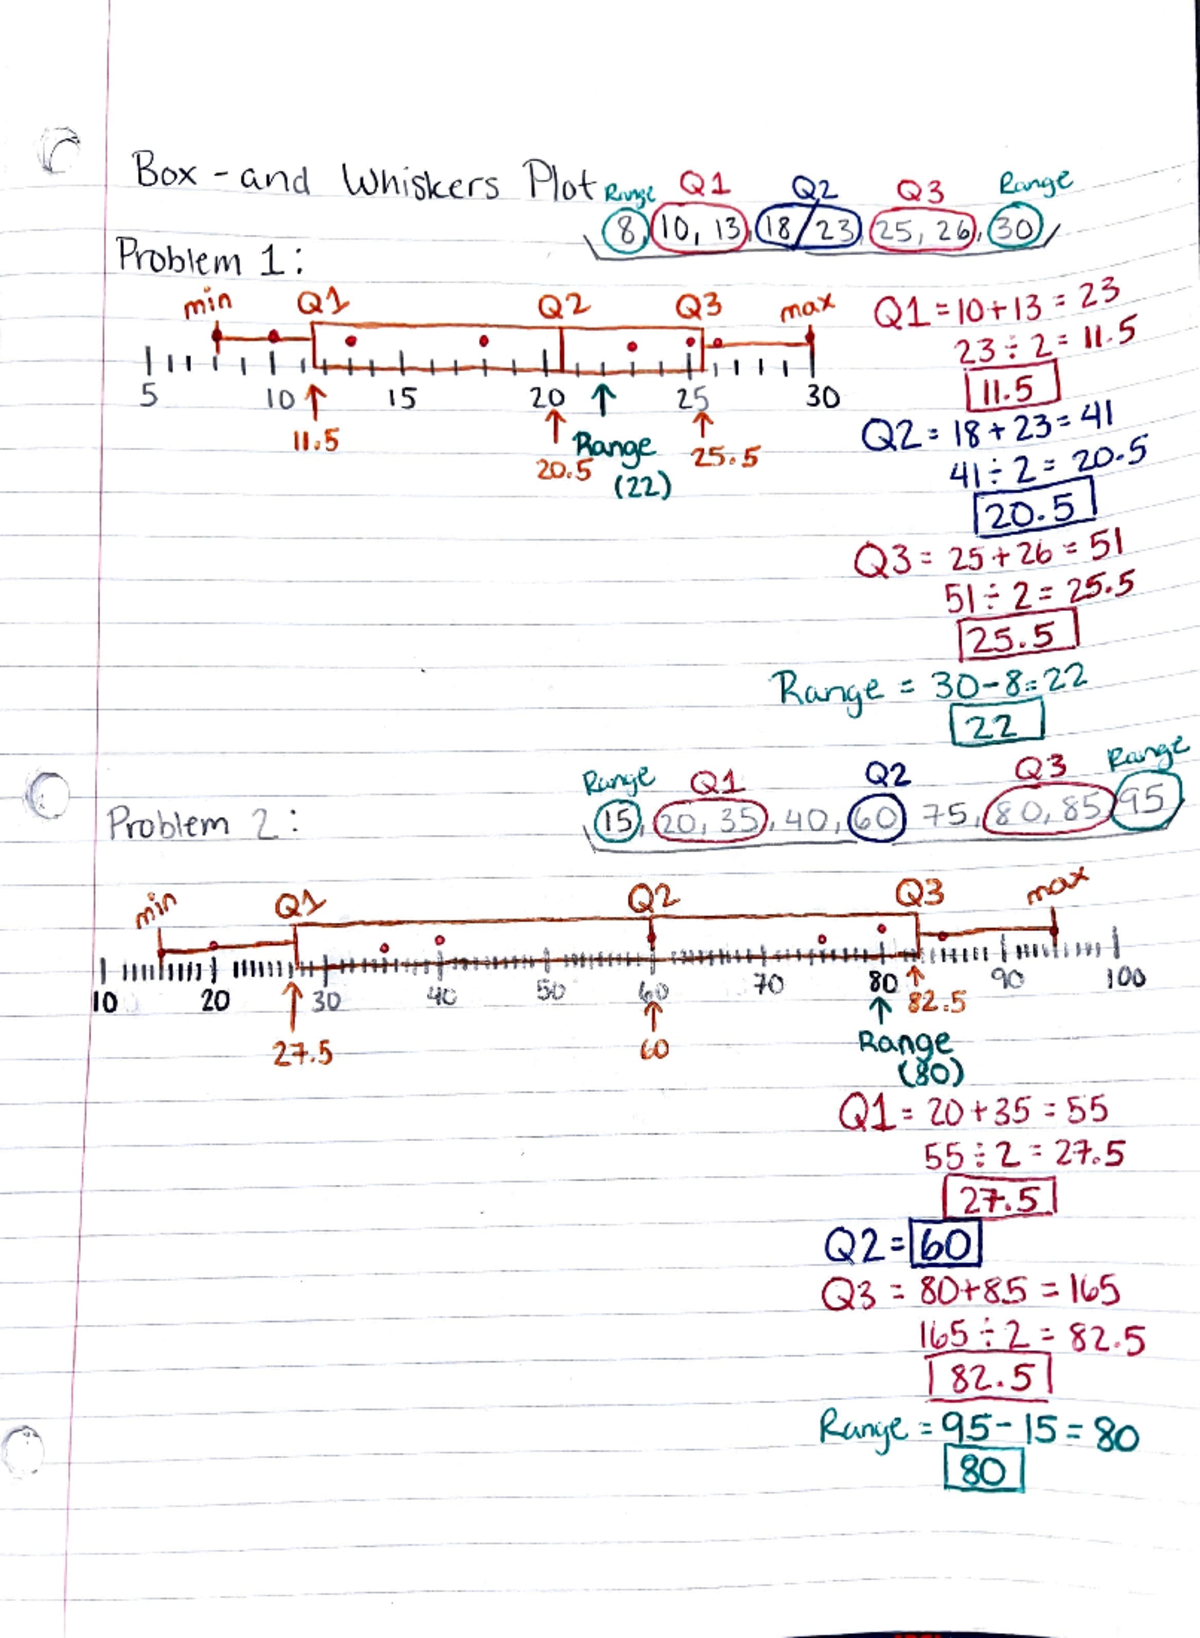 Box-and Whiskers Plot
Range Q1 Q2 Q3 Range
8, 10, 13, 18/23, 25, 26, 30
Problem 1:
min Q1 Q2 Q3 max
5 10 15 20 25 30
11.5 20.5 25.5
Range
(22)
Q1=10+13=23
23÷2=11.5
11.5
Q2=18+23=41
41÷2=20.5
20.5
Q3=25+26=51
51÷2=25.5
25.5
Range=30-8=22
22
Range Q1 Q2 Q3 Range
Problem 2:
15, 20, 35, 40, 60 75, 80, 85 95
min Q1 Q2 Q3 max
10 20 30 40 50 60 70 80 90 100
27.5 60 82.5
Range
(80)
Q1=20+35=55
55÷2=27.5
27.5
Q2=60
Q3=80+85=165
165÷2=82.5
82.5
Range=95-15=80
80